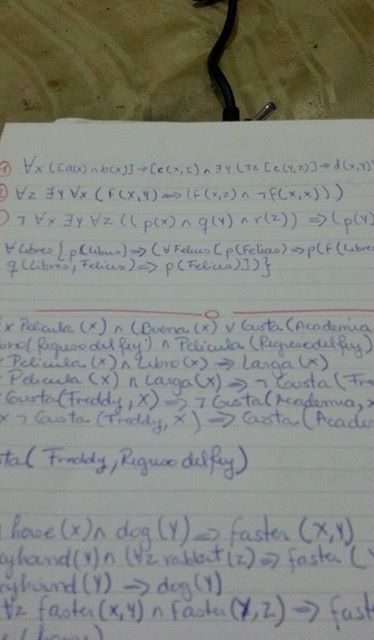 ∀x ([a(x) ∧ b(x)] → [c(x,z) ∧ ∃y (∃z [c(y,z)] → d(x,y)
∀z ∃y ∀x (f(x,y) ⟺ (f(x,z) ∧ ¬f(x,x)))
¬ ∀x ∃y ∀z ((p(x) ∧ q(y) ∧ r(z)) ⟹ (p(y)
∀Libros {p(Libros) ⟹ (∀Felicos [p(Felicos) ⟹ p(f(Libros
q(Libros, Felicos) ⟹ p(Felicos)])}
x Pelicula (x) ∧ (Buena (x) ∨ Gusta (Academia
(Regreso del Rey) ∧ Pelicula (Regreso del Rey)
Pelicula (x) ∧ Libro (x) ⟹ Larga (x)
Pelicula (x) ∧ Larga (x) ⟹ ¬ Gusta (Fre
Gusta (Freddy, x) ⟹ ¬ Gusta (Academia, x
x ¬ Gusta (Freddy, x) ⟹ Gusta (Acade
sta (Freddy, Regreso del Rey)
horse (x) ∧ dog (y) ⟹ faster (x,y)
eyhound (y) ∧ (∀z rabbit (z) ⟹ faster (y
eyhound (y) ⟹ dog (y)
∀z faster (x,y) ∧ faster (y,z) ⟹ fast